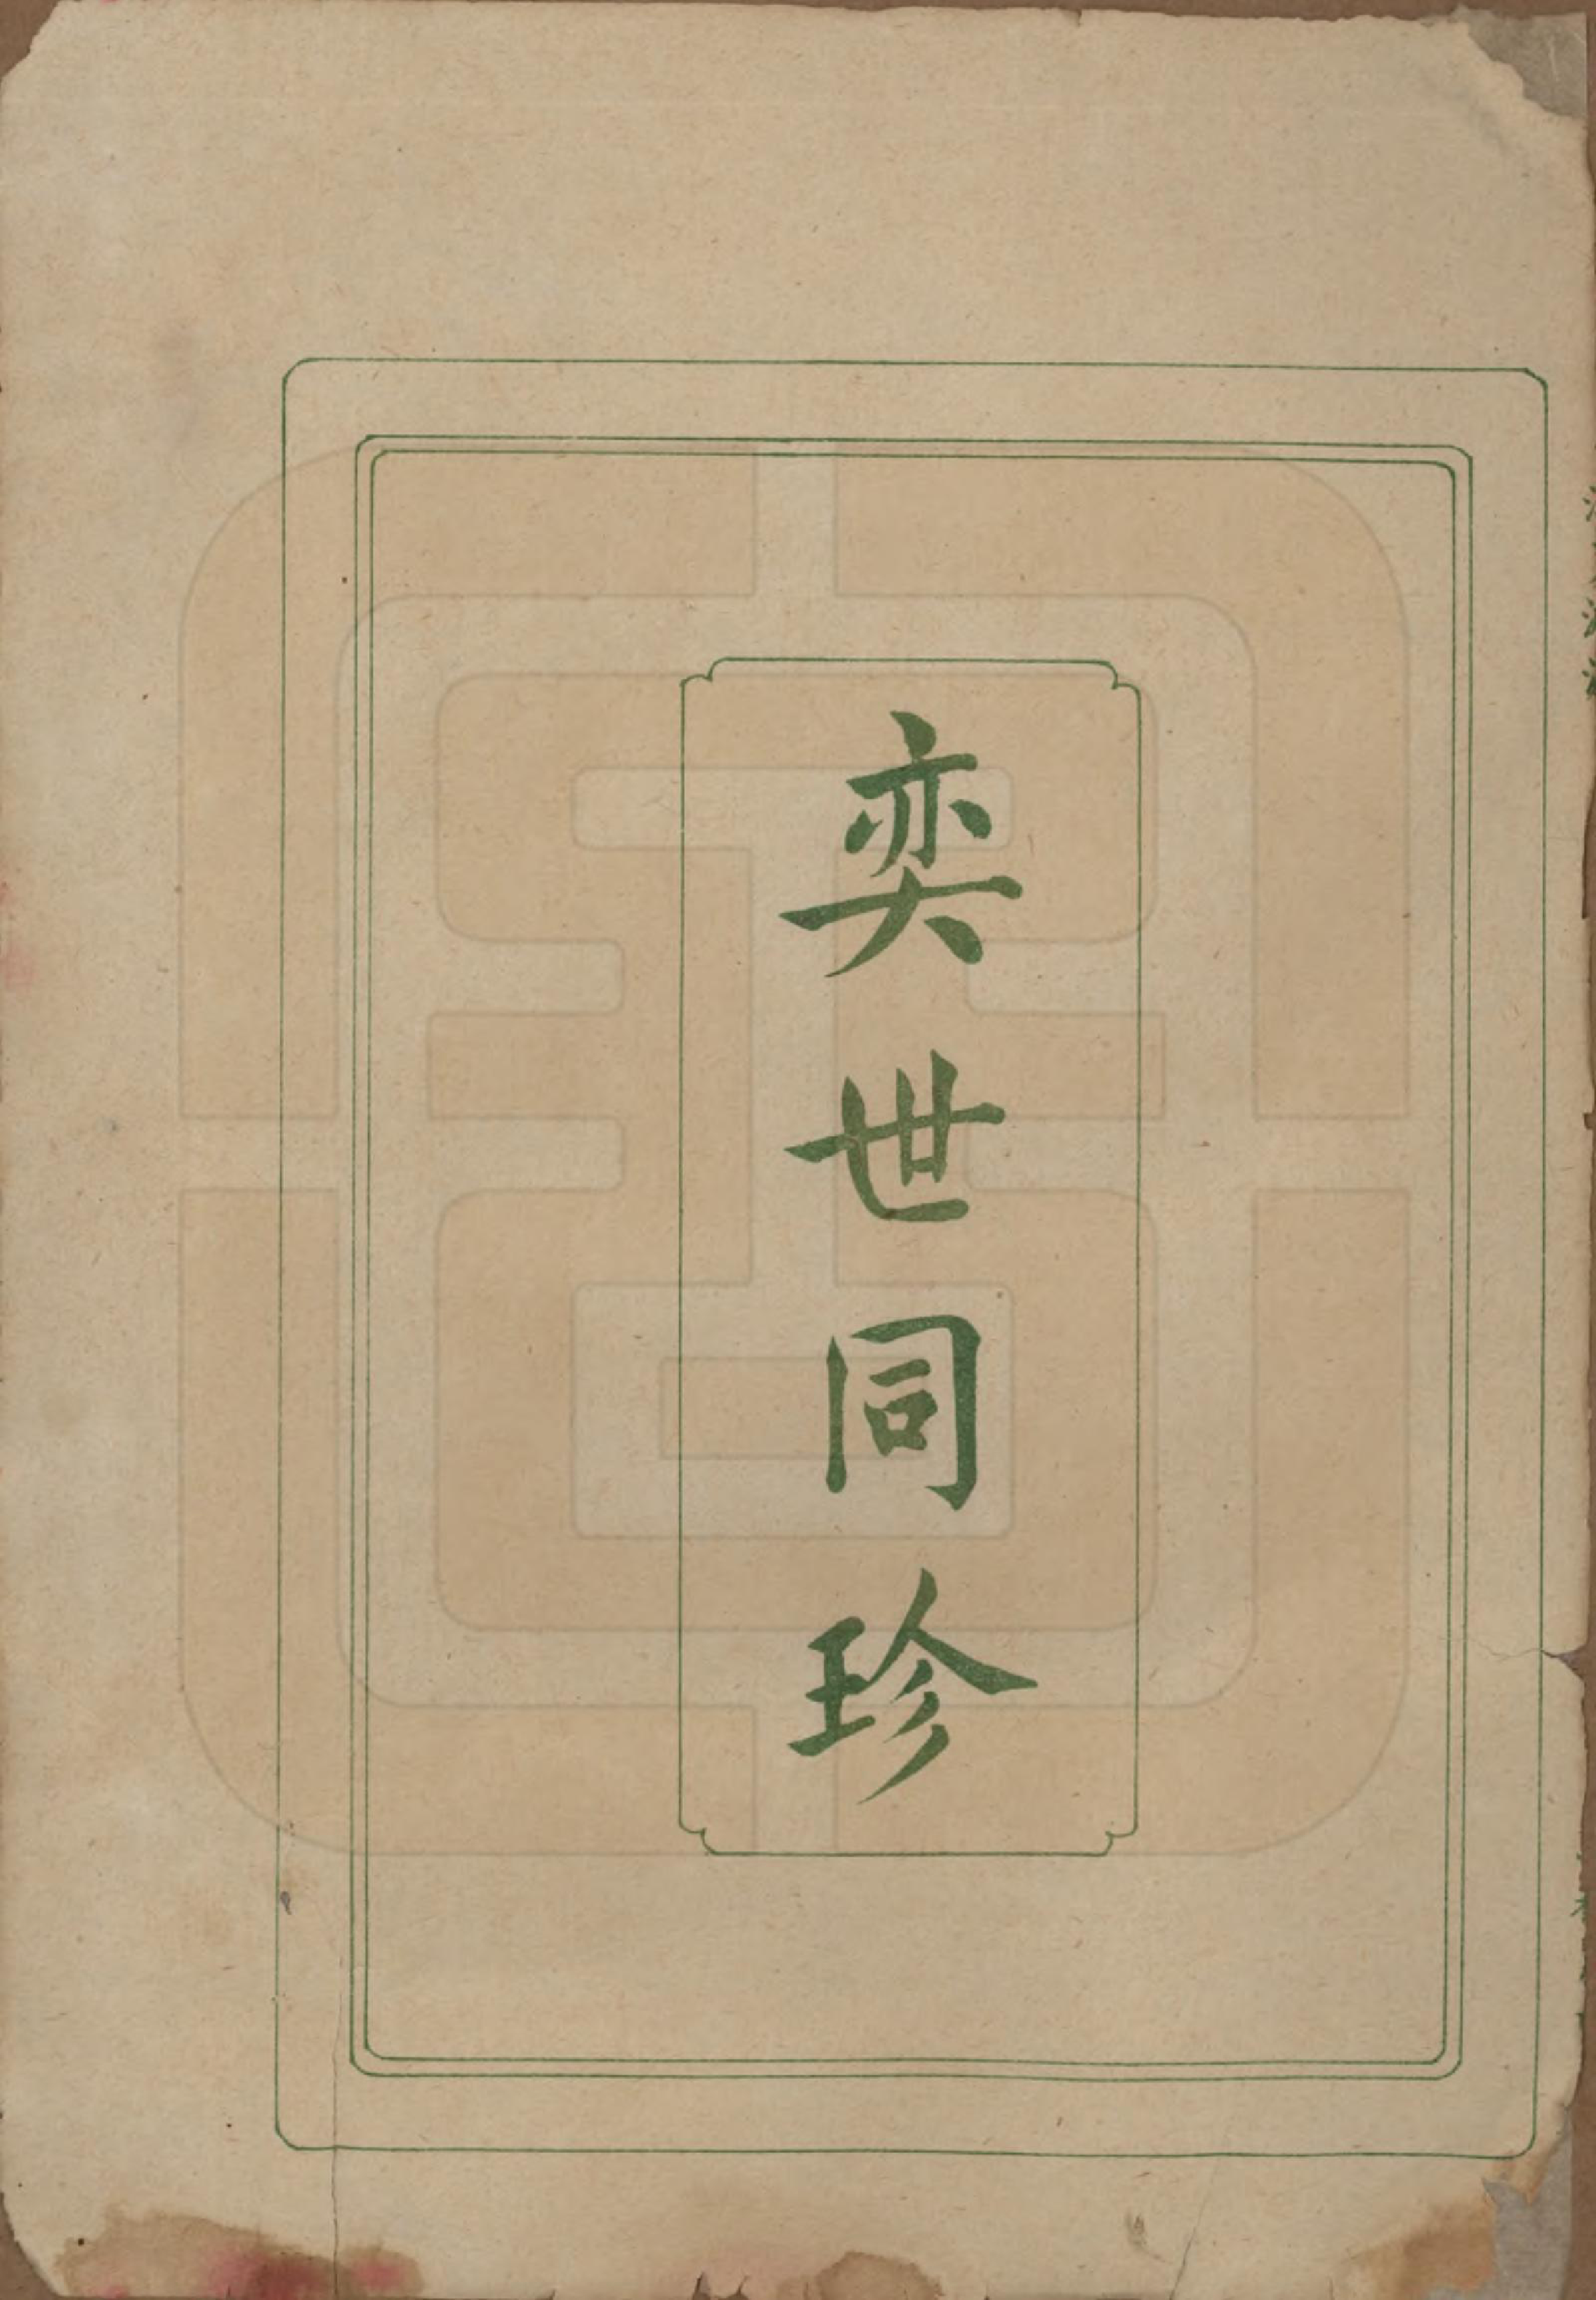 奕世同珍